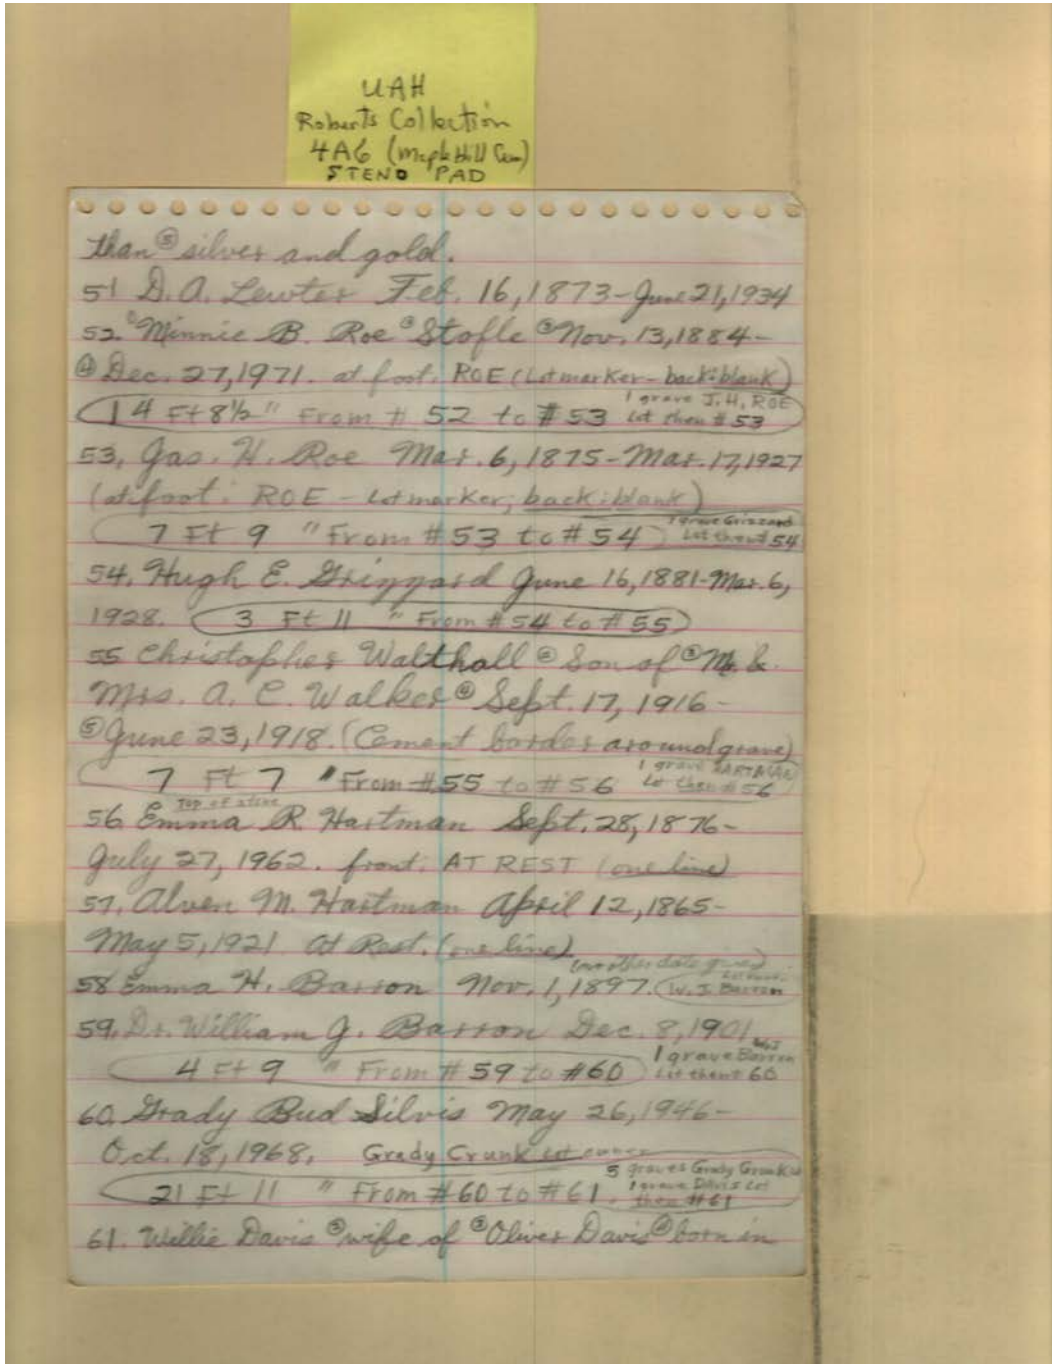 UAH
Roberts Collection
4A6 (Maple Hill Cem)
STENO PAD
than ⑤ silver and gold.
51 D. A. Lewter Feb. 16, 1873 - June 21, 1934
52. ① Minnie B. Roe ② Stofle ③ Nov. 13, 1884 -
④ Dec. 27, 1971. at foot. ROE (Lot marker - back: blank)
14 Ft 8½ " From # 52 to # 53 1 grave J. H. ROE
Lot then # 53
53, Jas. H. Roe Mar. 6, 1875 - Mar. 17, 1927
(at foot: ROE - Lot marker; back: blank)
7 Ft 9 " From # 53 to # 54 1 grave Grizzard
Lot then # 54
54, Hugh E. Grizzard June 16, 1881 - Mar. 6,
1928. 3 Ft 11 " From # 54 to # 55
55 Christopher Walthall ② Son of ③ Mr. &
Mrs. A. C. Walker ④ Sept. 17, 1916 -
⑤ June 23, 1918. (Cement border around grave)
7 Ft 7 " From # 55 to # 56 1 grave HARTMAN
Lot then # 56
Top of stone
56. Emma R. Hartman Sept. 28, 1876 -
July 27, 1962. front: AT REST (one line)
57, Alven M. Hartman April 12, 1865 -
May 5, 1921 At Rest. (one line)
(no other date given)
58 Emma H. Barron Nov. 1, 1897. W. J. Barron
59, Dr. William J. Barron Dec. 8, 1901.
4 Ft 9 " From # 59 to #60 1 grave Barron
Lot then # 60
60. Grady Bud Silvis May 26, 1946 -
Oct. 18, 1968. Grady Crunk Lot owner
21 Ft 11 " From # 60 to # 61. 5 graves Grady Crunk
1 grave Davis Lot
then # 61
61. Willie Davis ② wife of ③ Oliver Davis ④ born in